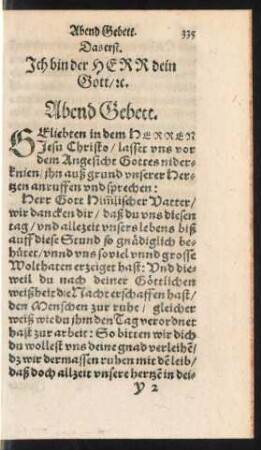 Abend Gebett. 335
Das erst.
Ich bin der HERR dein
Gott/ ꝛc.
Abend Gebett.
GEliebten in dem HERREN
Jesu Christo/ lasset vns vor
dem Angesicht Gottes nider-
knien/ jhn auß grund vnserer Her-
tzen anruffen vnd sprechen:
Herr Gott Him̃lischer Vatter/
wir dancken dir/ daß du vns diesen
tag/ vnd allezeit vnsers lebens biß
auff diese Stund so gnädiglich be-
hütet/ vnnd vns soviel vnnd grosse
Wolthaten erzeiget hast: Vnd die-
weil du nach deiner Göttlichen
weißheit die Nacht erschaffen hast/
den Menschen zur ruhe/ gleicher
weiß wie du jhm den Tag verordnet
hast zur arbeit: So bitten wir dich
du wollest vns deine gnad verleihẽ/
dz wir dermassen ruhen mit dẽ leib/
daß doch allzeit vnsere hertzẽ in dei-
Y 2